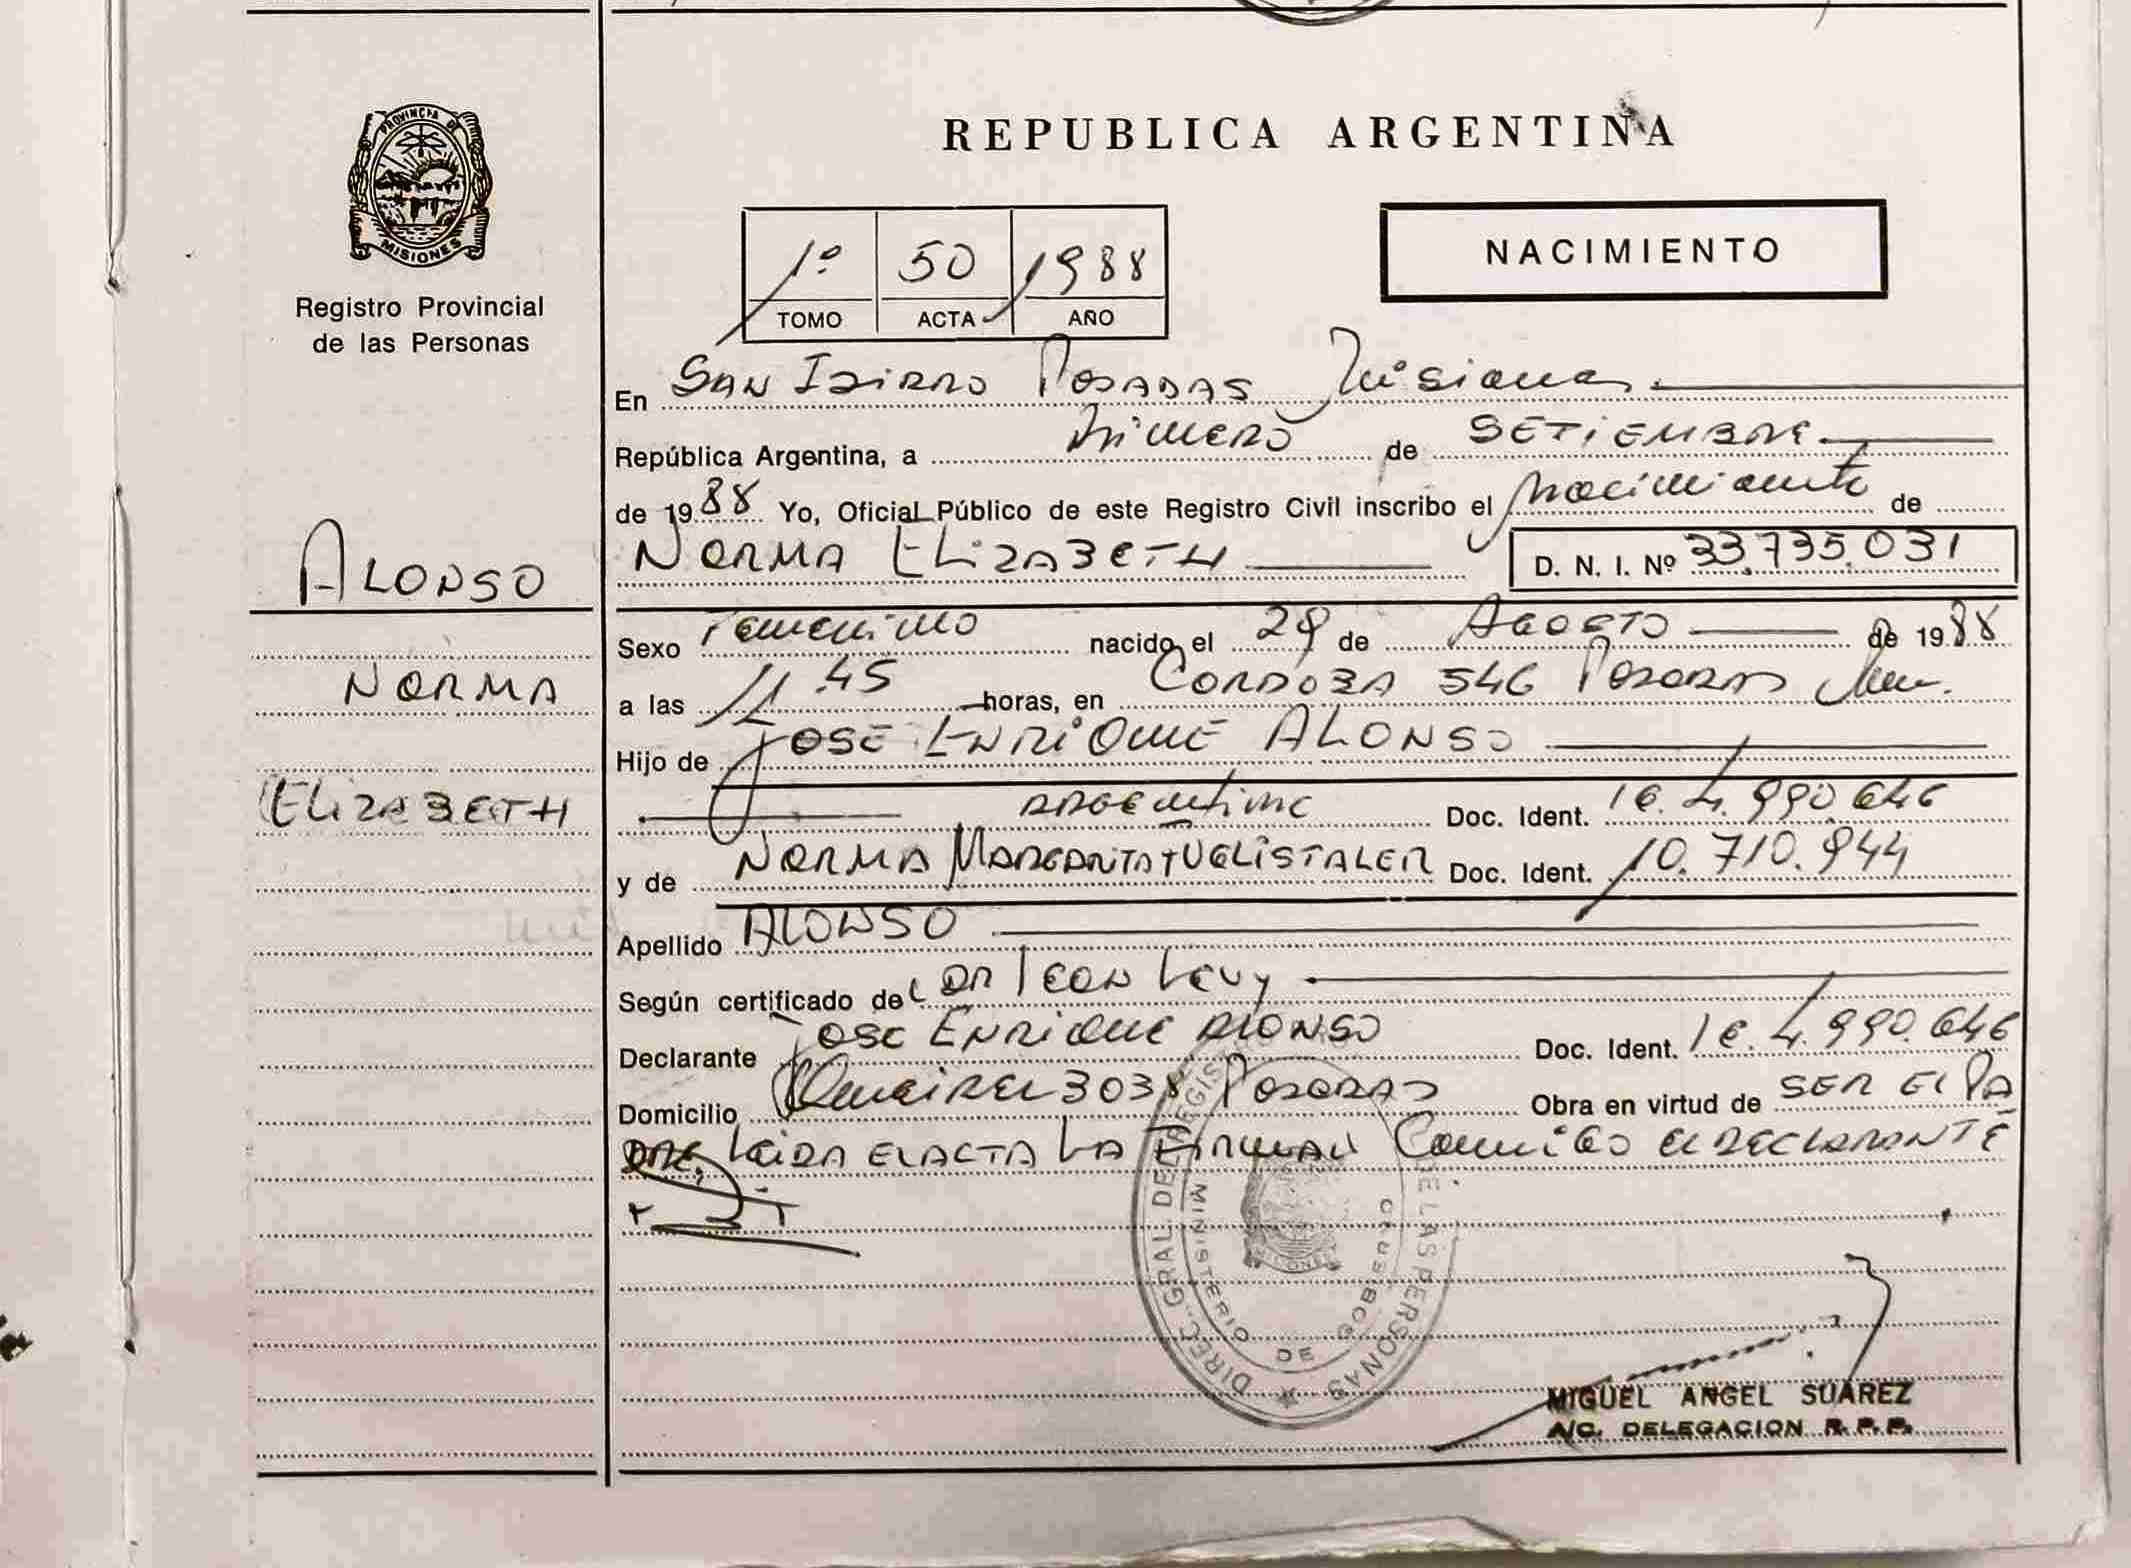 PROVINCIA DE
MISIONES
Registro Provincial
de las Personas
ALONSO
NORMA
ELIZABETH
REPUBLICA ARGENTINA
1º 50 1988
TOMO ACTA AÑO
NACIMIENTO
En SAN ISIDRO POSADAS Misiones
República Argentina, a Primero de SETIEMBRE
de 1988 Yo, Oficial Público de este Registro Civil inscribo el Nacimiento de
NORMA ELIZABETH D. N. I. Nº 33.735.031
Sexo Femenino nacido el 29 de AGOSTO de 1988
a las 11.45 horas, en CORDOBA 546 POSADAS
Hijo de JOSE ENRIQUE ALONSO
ARGENTINO Doc. Ident. 4.990.646
y de NORMA MARGARITA Doc. Ident. 10.710.944
Apellido ALONSO
Según certificado de DR LEON LEVY
Declarante JOSE ENRIQUE ALONSO Doc. Ident. 4.990.646
Domicilio 3038 POSADAS Obra en virtud de SER EL PA
DRE. LEIDA EL ACTA LA FIRMAN Conmigo EL DECLARANTE
DIREC. GRAL DEL REGISTRO DE LAS PERSONAS
MINISTERIO DE GOBIERNO
MISIONES
MIGUEL ANGEL SUAREZ
A/C. DELEGACION R.P.P.